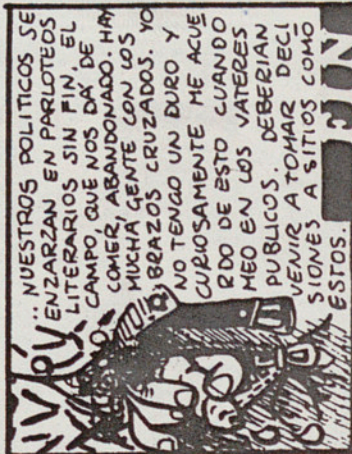 ..NUESTROS POLITICOS SE
ENZARZAN EN PARLOTEOS
LITERARIOS SIN FIN, EL
CAMPO, QUE NOS DÁ DE
COMER, ABANDONADO. HAY
MUCHA GENTE CON LOS
BRAZOS CRUZADOS. YO
NO TENGO UN DURO Y
CURIOSAMENTE ME ACUE
RDO DE ESTO CUANDO
MEO EN LOS VATERES
PUBLICOS. DEBERIAN
VENIR A TOMAR DECÍ
SIONES A SITIOS COMO
ESTOS.